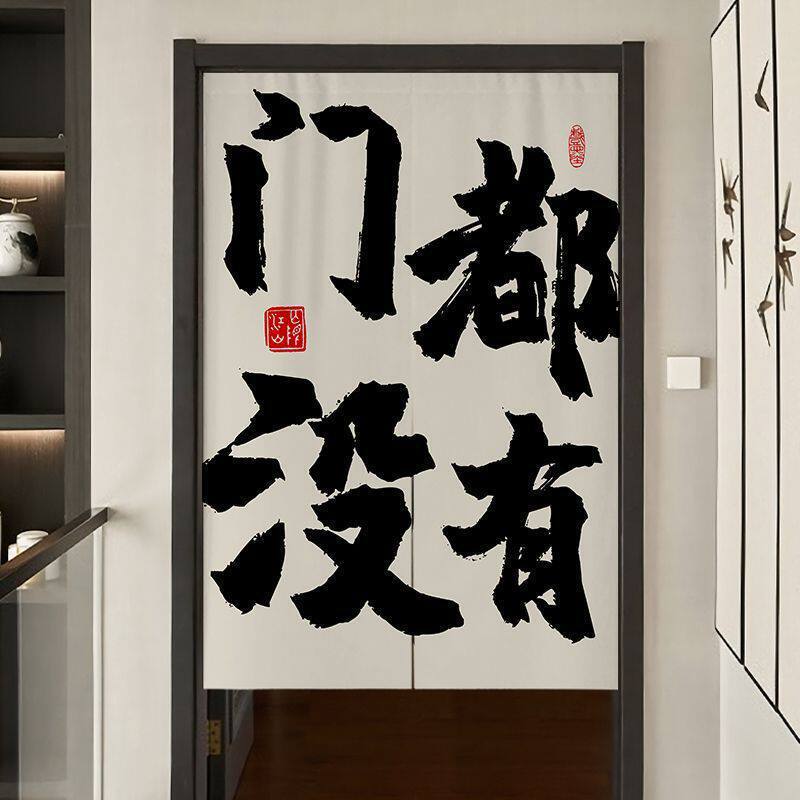 门都
没有